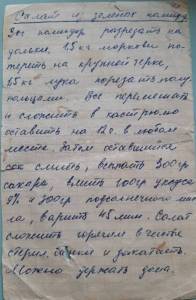 Салат из зелёных помидор
3кг помидор разрезать на
дольки, 1,5 кг моркови по-
тереть на крупной терке,
1,5кг лука порезать полу-
кольцами Все перемешать
и сложить в кастрюлю
оставить на 12 ч. в любом
месте. Затем оставшийся
сок слить, всыпать 300гр
сахара, влить 100гр уксуса
9% и 300гр подсолнечного мас-
ла, варить 45 мин. Салат
сложить горячим в чистые
стерил. банки и закатать.
Можно держать дома.